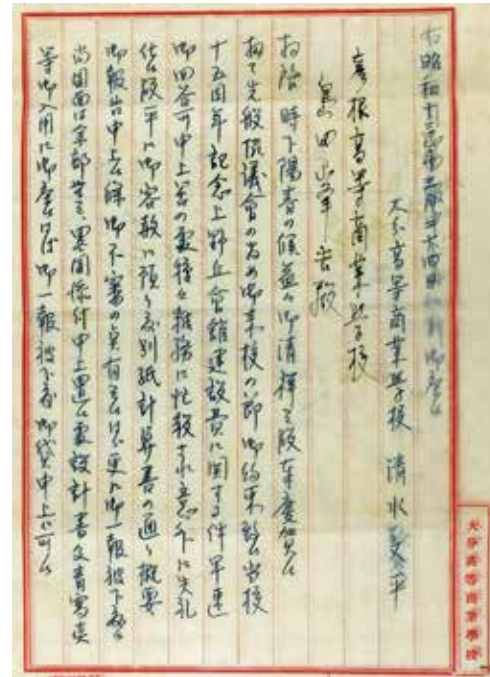 大分高等商業学校 清水
彦根高等商業学校
殿
拝啓 時下陽春の候益々御清祥之段奉慶賀候
扨て先般協議会の為め御来校の節御約束致候当校
十五周年記念上野丘会館建設費に関する件早速
御回答可申上筈の処種々校務に忙殺され意外に失礼
仕候段平に御容赦に預り度別紙計算書の通り概要
御報告申上候 御不審の点有之候はゞ更に御一報被下度候
尚図面は 関係 設計書及青写真
等御入用に御座候はゞ御一報被下度御貸申上可く候
大分高等商業學校